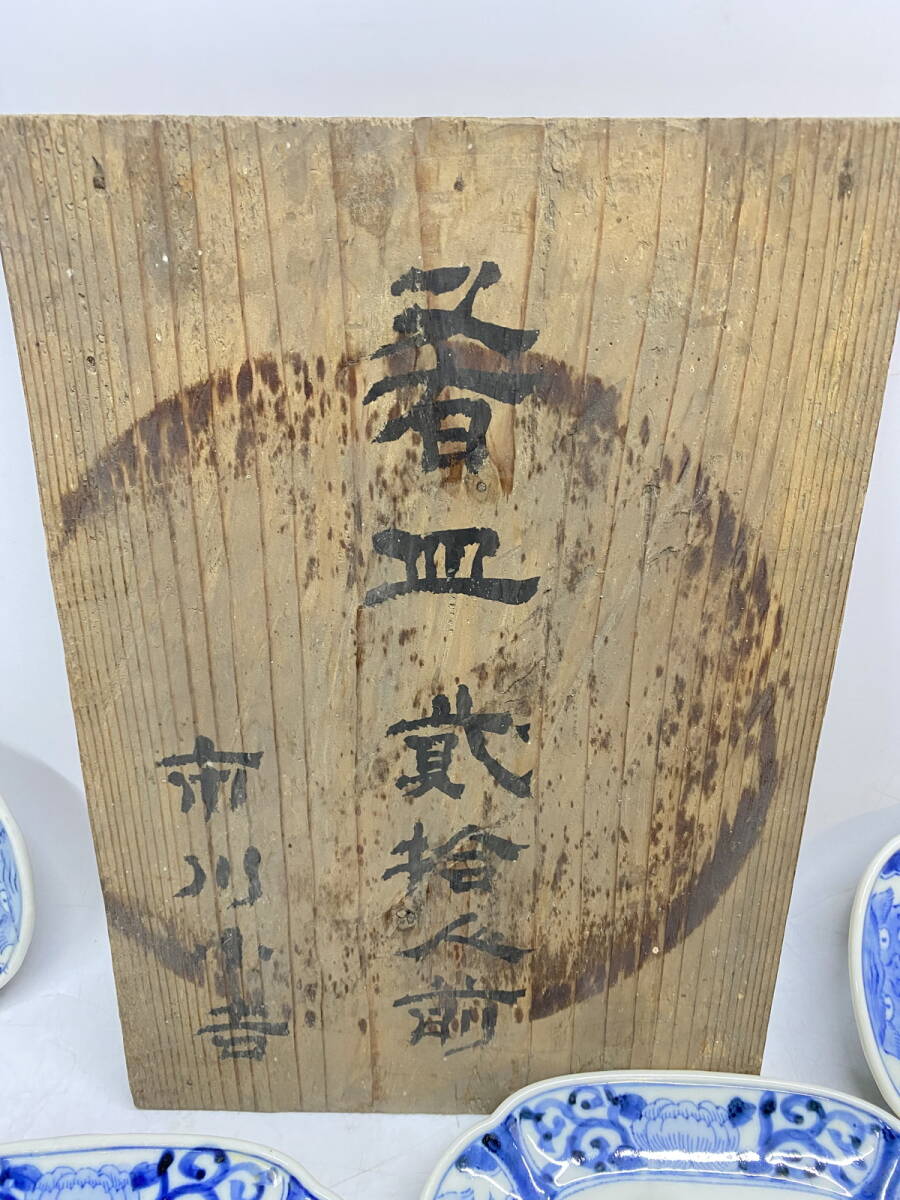 肴皿貳拾人前
市川小吉